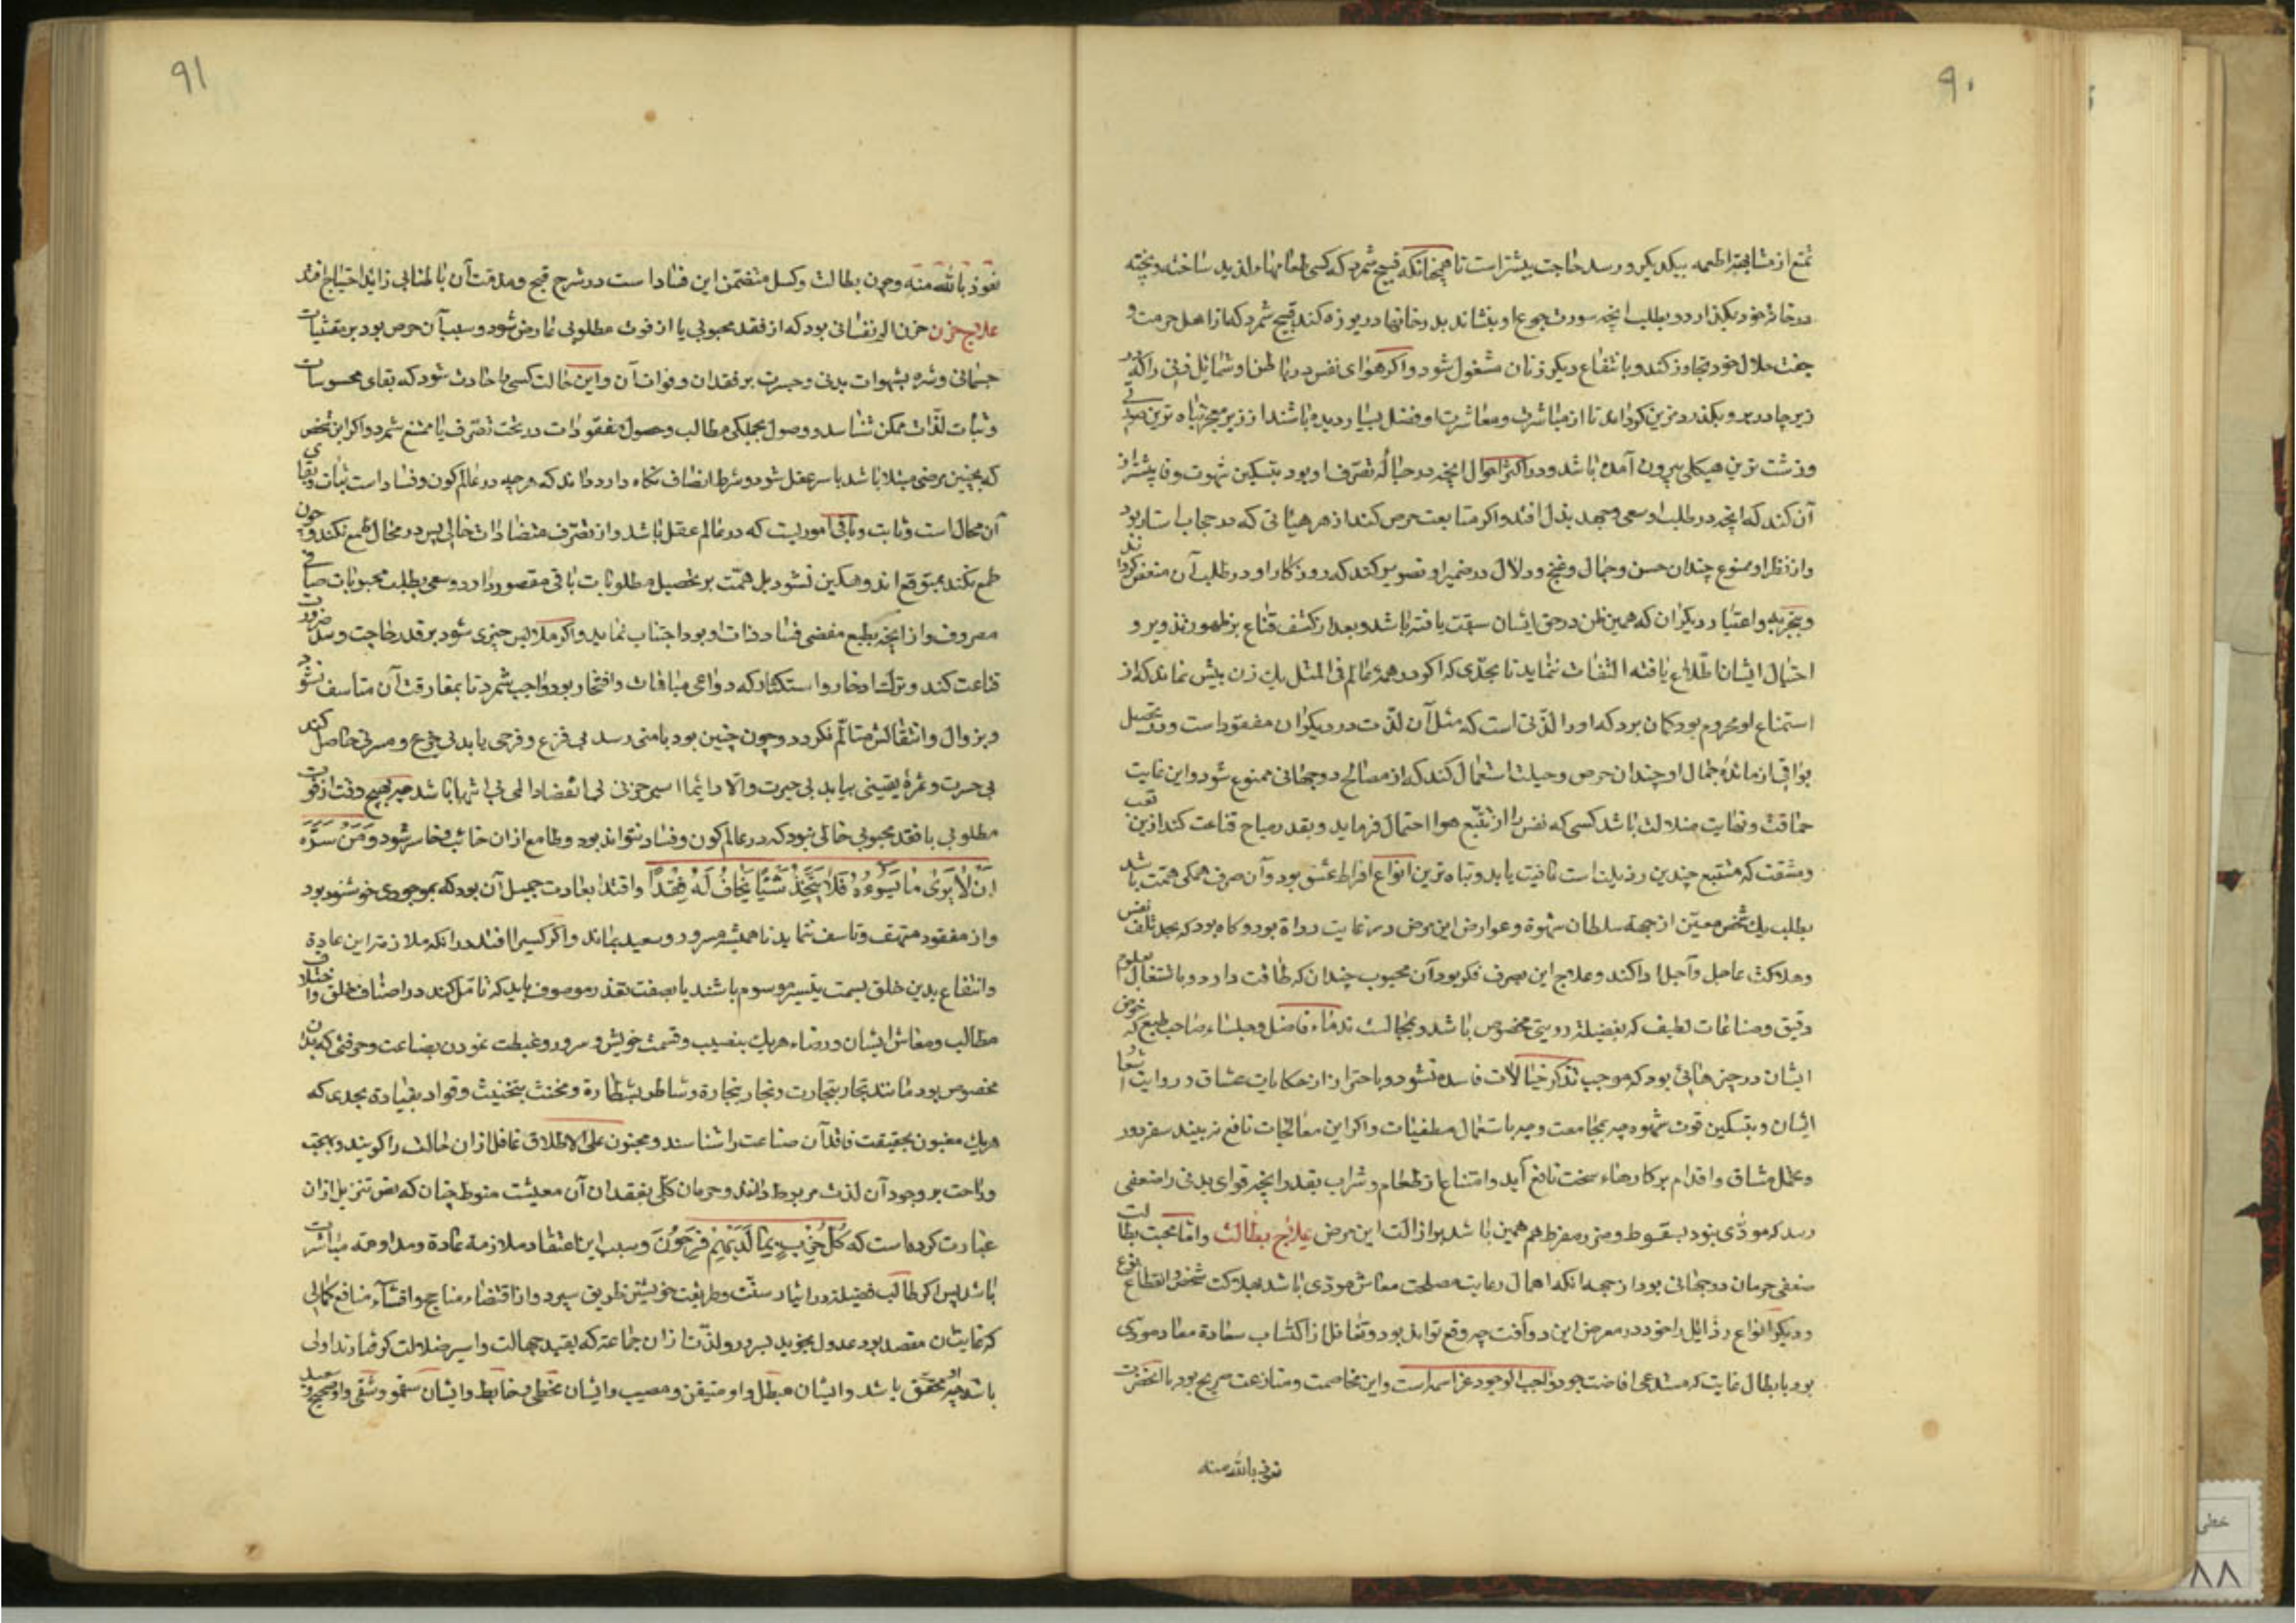 ۹۰
تمتع از مشابهت اطعمه بیکدیگر در سد حاجت بیشتر است تا همچنانکه قبیح شمرد که کسی طعامهاء لذیذ ساخته و پخته
در خانه خود بگذارد و بطلب آنچه سورت جوع او بنشاند بدر خانها دریوزه کند قبیح شمرد که از اهل حرمت و
جفت حلال خود تجاوز کند و بانتفاع دیگر زنان مشغول شود و اگر هوای نفس در باطن او شمایل زنی را که در
زیر چادر برو بگذرد مزین گرداند تا از مباشرت و معاشرت او فضل بسیار دیده باشند از زیر معجر تباه ترین صورتی
و زشت ترین هیکلی بیرون آمده باشد و در اکثر احوال آنچه در حباله تصرف او بود بتسکین شهوت وفا بیشتر از
آن کند که آنچه در طلب او سعی و جهد بذل افتد و اگر متابعت حرص کند از هر هیاتی که در حجاب استار بود
و از نظر او ممنوع چندان حسن و جمال و غنج و دلال در ضمیر او تصویر کند که روزگار او در طلب آن منغص گرداند
و بتجربه و اعتبار دیگران که همین ظن در حق ایشان سبقت یافته باشد و بعد از کشف قناع بر ظهور تزویر و
احتیال ایشان اطلاع یافته التفات ننماید تا بحدی که اگر در همه عالم فی المثل یک زن بیش نماند که از
استمتاع او محروم بود گمان برد که او را لذتی است که مثل آن لذت در دیگران مفقود است و در تحصیل
بواقی از مائده جمال او چندان حرص و حیلت استعمال کند که از مصالح دو جهانی ممنوع شود و این غایت
حماقت و نهایت ضلالت باشد کسی که نفس را از تتبع هوا احتمال فرماید و بقدر مباح قناعت کند ازین تعب
و مشقت که مستتبع چندین رذیلت است عافیت یابد و تباه ترین انواع افراط عشق بود و آن صرف همگی همت باشد
بطلب یک شخص معین از جهة سلطان شهوة و عوارض این مرض در غایت رداة بود و گاه بود که بحد تلف نفس
و هلاکت عاجل و آجل ادا کند و علاج این بصرف فکر بود از محبوب چندان که طاقت دارد و باشتغال بعلوم
دقیق و صناعات لطیف که بفضیلة رویتی مخصوص باشد و بمجالست ندماء فاضل و جلساء صاحب طبع که خوض
ایشان در چیزهائی بود که موجب تذکر خیالات فاسده نشود و باحتراز از حکایات عشاق و روایت اشعار
ایشان و بتسکین قوت شهوه چه بمجامعت و چه باستعمال مطفئیات و اگر این معالجات نافع نه بیند سفر دور
و تحمل مشاق و اقدام بر کارهاء سخت نافع آید و امتناع از طعام و شراب بقدر آنچه قوای بدنی را ضعفی
رسد که مودی بنود بسقوط و ضرر مفرط هم همین باشد بر ازالت این مرض علاج بطالت و اما محبت بطالت
مقتضی حرمان دو جهانی بود از جهة آنکه اهمال رعایت مصلحت معاش مودی باشد بهلاکت شخص و انقطاع نوع
و دیگر انواع رذایل را خود در معرض این دو آفت چه وقع تواند بود و تغافل از اکتساب سعادة معاد مودی
بود بابطال غایت که مستدعی افاضت جود واجب الوجود عز اسمه است و این مخاصمت و منازعت صریح بود با آنحضرت
نعوذ بالله منه
۹۱
نعوذ بالله منه و چون بطالت و کسل متضمن این فساد است در شرح قبح و مذمت آن باطنابی زاید احتیاج افتد
علاج حزن حزن الم نفسانی بود که از فقد محبوبی یا از فوت مطلوبی عارض شود و سبب آن حرص بود بر مقتنیات
جسمانی و شره بشهوات بدنی و حسرت بر فقدان و فوات آن و این حالت کسی را حادث شود که بقای محسوسات
و ثبات لذات ممکن شناسد و وصول بجملگی مطالب و حصول مفقودات در تحت تصرف نا ممتنع شمرد و اگر این شخص
که بچنین مرضی مبتلا باشد با سر عقل شود و شرط انصاف نگاه دارد داند که هرچه در عالم کون و فساد است ثبات و بقای
آن محال است و ثابت و باقی امور یست که در عالم عقل باشد و از تصرف متضادات خالی پس در محال طمع نکند و چون
طمع نکند بمتوقع اندوهگین نشود بل همت بر تحصیل مطلوبات باقی مقصور دارد و سعی بطلب محبوبات صافی
مصروف و از آنچه بطبع مقتضی فساد ذات او بود اجتناب نماید و اگر ملابس چیزی شود بر قدر حاجت و سد ضرورت
قناعت کند و ترک ادخار و استکثار که دواعی مباهات و افتخار بود واجب شمرد تا بمفارقت آن متاسف نشود
و بزوال و انتقالش متالم نگردد و چون چنین بود بامنی رسد بی فزع و فرحی یابد بی جزع و مسرتی حاصل کند
بی حسرت و ثمرهٔ یقینی بیابد بی حیرت و الا دایما اسیر حزنی بی انقضا و المی بی انتها باشد چه بهیچ وقت از فوت
مطلوبی یا فقد محبوبی خالی نبود که در عالم کون و فساد نتواند بود و طامع از آن خائب و خاسر شود وَمَنْ سَرَّهُ
اَنْ لاٰ یَرىٰ مٰا یَسُوءُهُ فَلاٰ یَتَّخِذْ شَیْئاً یَخٰافُ لَهُ فَقْداً و اقتدا بعادت جمیل آن بود که بموجودی خوشنود بود
و از مفقود متهف و تاسف ننماید تا همیشه مسرور و سعید بماند و اگر کسیرا افتد در آنکه ملازمت این عادة
و انتفاع بدین خلق بسمت تیسر موسوم باشند یا بصفت تعذر موصوف باید که تامل کند در اصناف خلق و اختلاف
مطالب و معاش ایشان و رضاء هر یک بنصیب و قسمت خویش و سرور و غبطت نمودن بصناعت و حرفتی که بدان
مخصوص بود مانند تجار بتجارت و نجار بنجارة و شاطر بشطارة و مخنث بتخنیث و قواد بقیادة بحدی که
هر یک مغبون بحقیقت فاقد آن صناعت را شناسند و مجنون علی الاطلاق غافل از ان حالت را گویند و بهجت
و راحت بر وجود آن لذت مربوط دانند و حرمان کلی بفقدان آن معیشت منوط چنان که نص تنزیل از آن
عبارت کرده است که کُلُّ حِزْبٍ بِمٰا لَدَیْهِمْ فَرِحُونَ و سبب این اعتقاد ملازمة عادة و مداومة مباشرت
باشد پس اگر طالب فضیلة در ایثار سنت و طریقت خویشتن طریق سپرد و از اقتضاء مناهج و اقتناء منافع کمالی
که غایتشان مقصد بود عدول نجوید بسرور و لذت از ان جماعة که بقید جهالت و اسیر ضلالت گرفتارند اولی
باشد چه او محق باشد و ایشان مبطل و او متیقن و مصیب و ایشان مخطی و خابط و ایشان سقیم و شقی و او صحیح و سعید
خطی